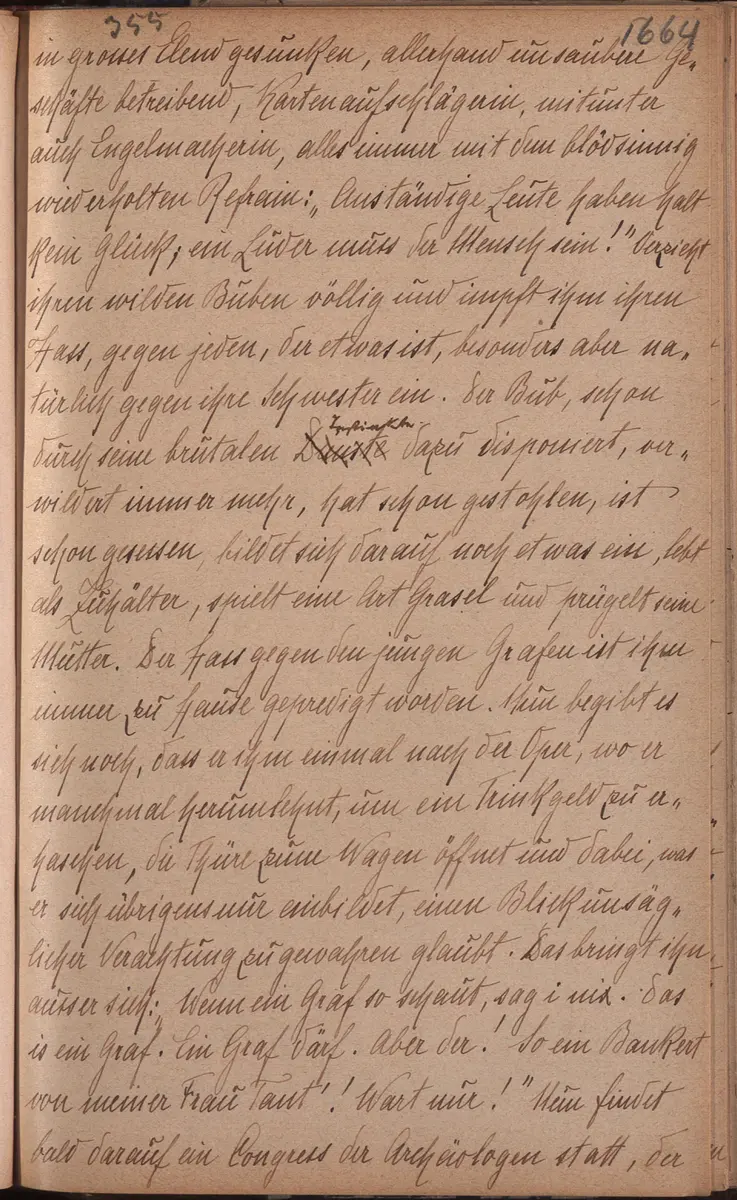 355
1664
in grosses Elend gesunken, allerhand unsaubere Ge„
schäfte betreibend, Kartenaufschlägerin, mitunter
auch Engelmacherin, alles immer mit dem blödsinnig
wiederholten Refrain: „Anständige Leute haben halt
kein Glück; ein Luder muss der Mensch sein!" Verzieht
ihren wilden Buben völlig und impft ihm ihren
Hass, gegen jeden, der etwas ist, besonders aber na„
türlich gegen ihre Schwester ein. Der Bub, schon
Instinkte
durch seine brutalen dazu disponiert, ver„
wildert immer mehr, hat schon gestohlen, ist
schon gesessen, bildet sich darauf noch etwas ein, lebt
als Zuhälter, spielt eine Art Grasel und prügelt seine
Mutter. Der Hass gegen den jungen Grafen ist ihm
immer zu Hause gepredigt worden. Nun begibt es
sich noch, dass er ihm einmal nach der Oper, wo er
manchmal herumlehnt, um ein Trinkgeld zu er„
haschen, die Thüre zum Wagen öffnet und dabei, was
er sich übrigens nur einbildet, einen Blick unsäg„
licher Verachtung zu gewahren glaubt. Das bringt ihn
ausser sich: „Wenn ein Graf so schaut, sag i nix. Das
is ein Graf. Ein Graf därf. Aber der! So ein Bankert
von meiner Frau Tant'! Wart nur!" Nun findet
bald darauf ein Congress der Archäologen statt, der